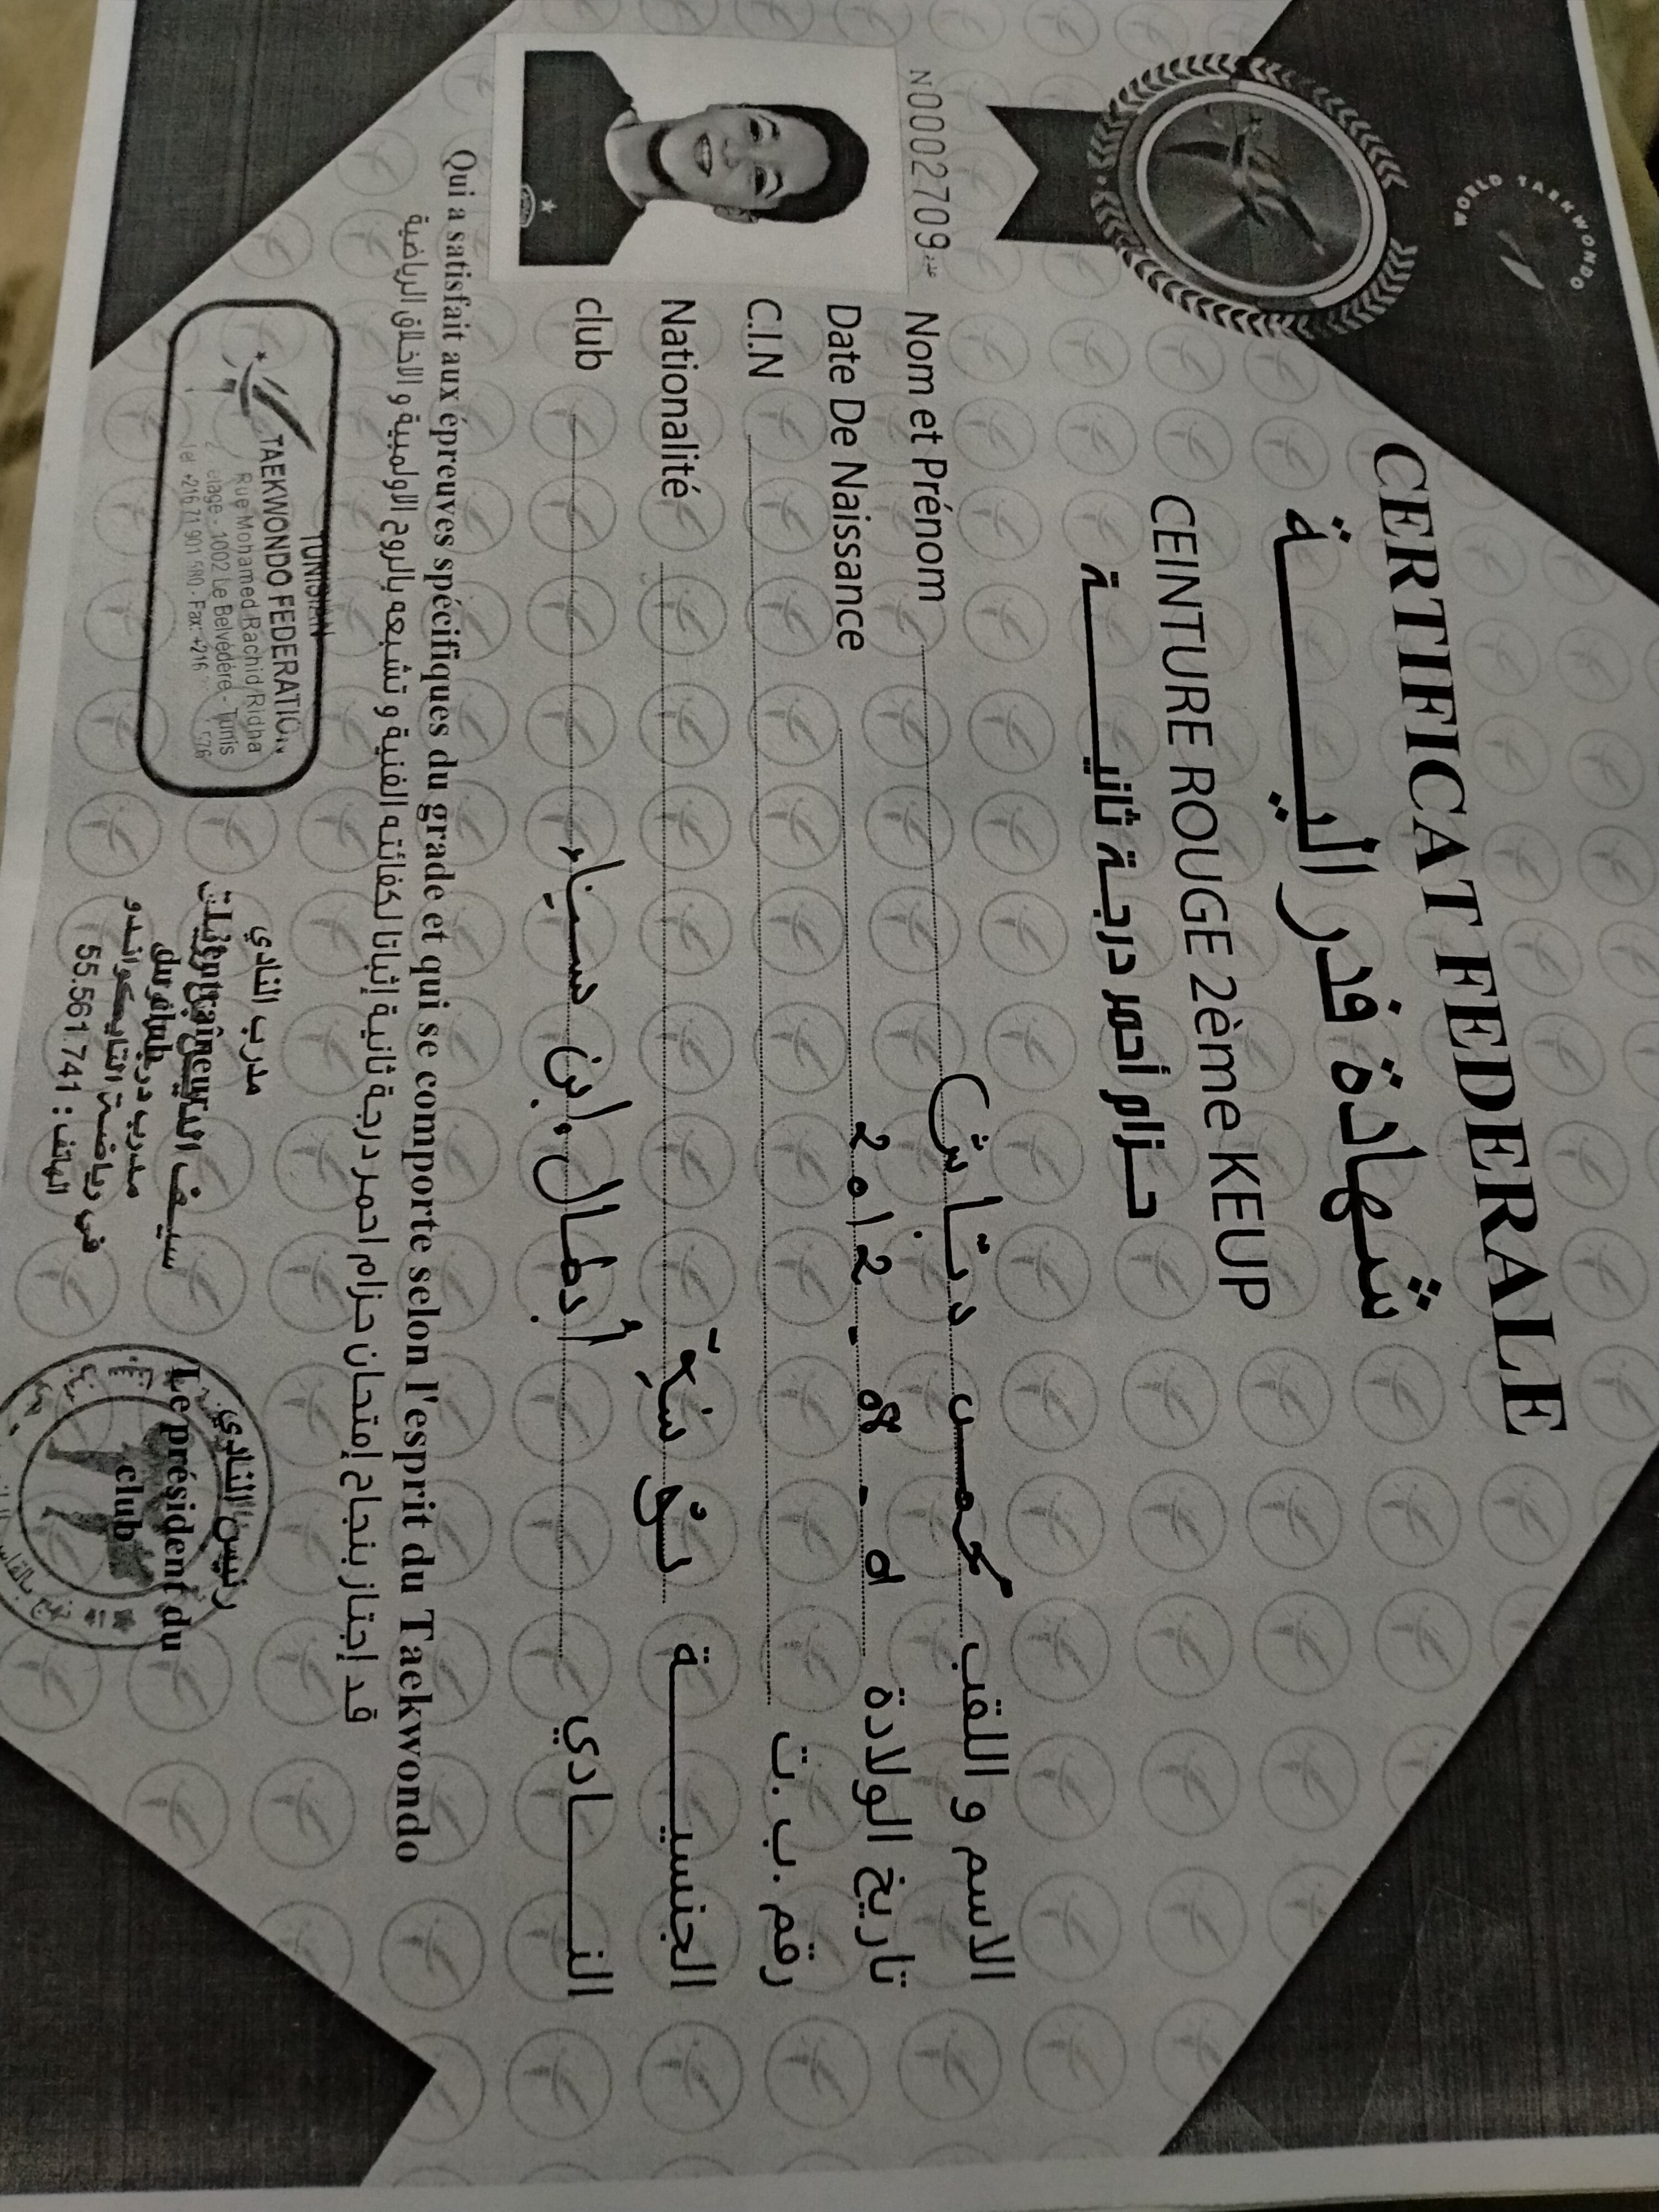 WORLD TAEKWONDO
CERTIFICAT FEDERALE
شهادة فدراليـــــــة
CEINTURE ROUGE 2ème KEUP
حـزام أحمر درجـة ثانيـــــــة
N00002709 عدد
Nom et Prénom محمد دبّاش الاسم و اللقب
Date De Naissance 2012 - 8 - تاريخ الولادة
C.I.N رقم .ب .ت
Nationalité تونسيّة الجنسيــــــة
club أبطال ابن سيناء النــــادي
Qui a satisfait aux épreuves spécifiques du grade et qui se comporte selon l'esprit du Taekwondo
قد إجتاز بنجاح إمتحان حزام احمر درجة ثانية إثباتا لكفائته الفنية و تشبعه بالروح الاولمبية و الاخلاق الرياضية
TUNISIAN
TAEKWONDO FEDERATION
Rue Mohamed Rachid Ridha
etage - 1002 Le Belvédère - Tunis
Tel +216 71 901 580 - Fax: +216
مدرب النادي
L'entraîneur
du club
سيف الدين
مدرب درجة
في رياضة التايكواندو
الهاتف : 55.561.741
رئيس النادي
Le président du
club